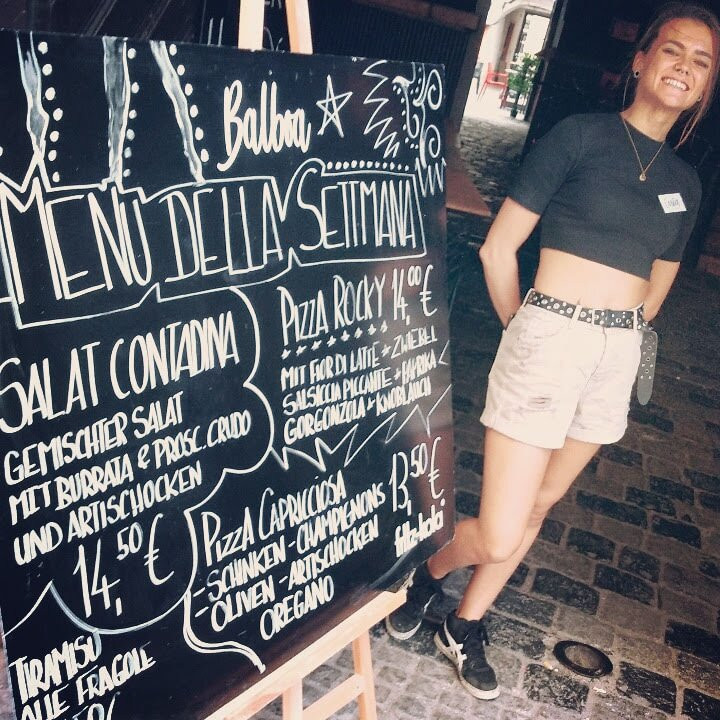 Balboa
MENU DELLA SETTIMANA
SALAT CONTADINA
GEMISCHTER SALAT
MIT BURRATA & PROSC. CRUDO
UND ARTISCHOCKEN
14,50 €
TIRAMISU
ALLE FRAGOLE
PIZZA ROCKY 14,00 €
MIT FIOR DI LATTE + ZWIEBEL
SALSICCIA PICCANTE + PAPRIKA
GORGONZOLA + KNOBLAUCH
PIZZA CAPRICCIOSA 13,50 €
- SCHINKEN - CHAMPIGNONS
- OLIVEN - ARTISCHOCKEN
OREGANO
fritz-kola